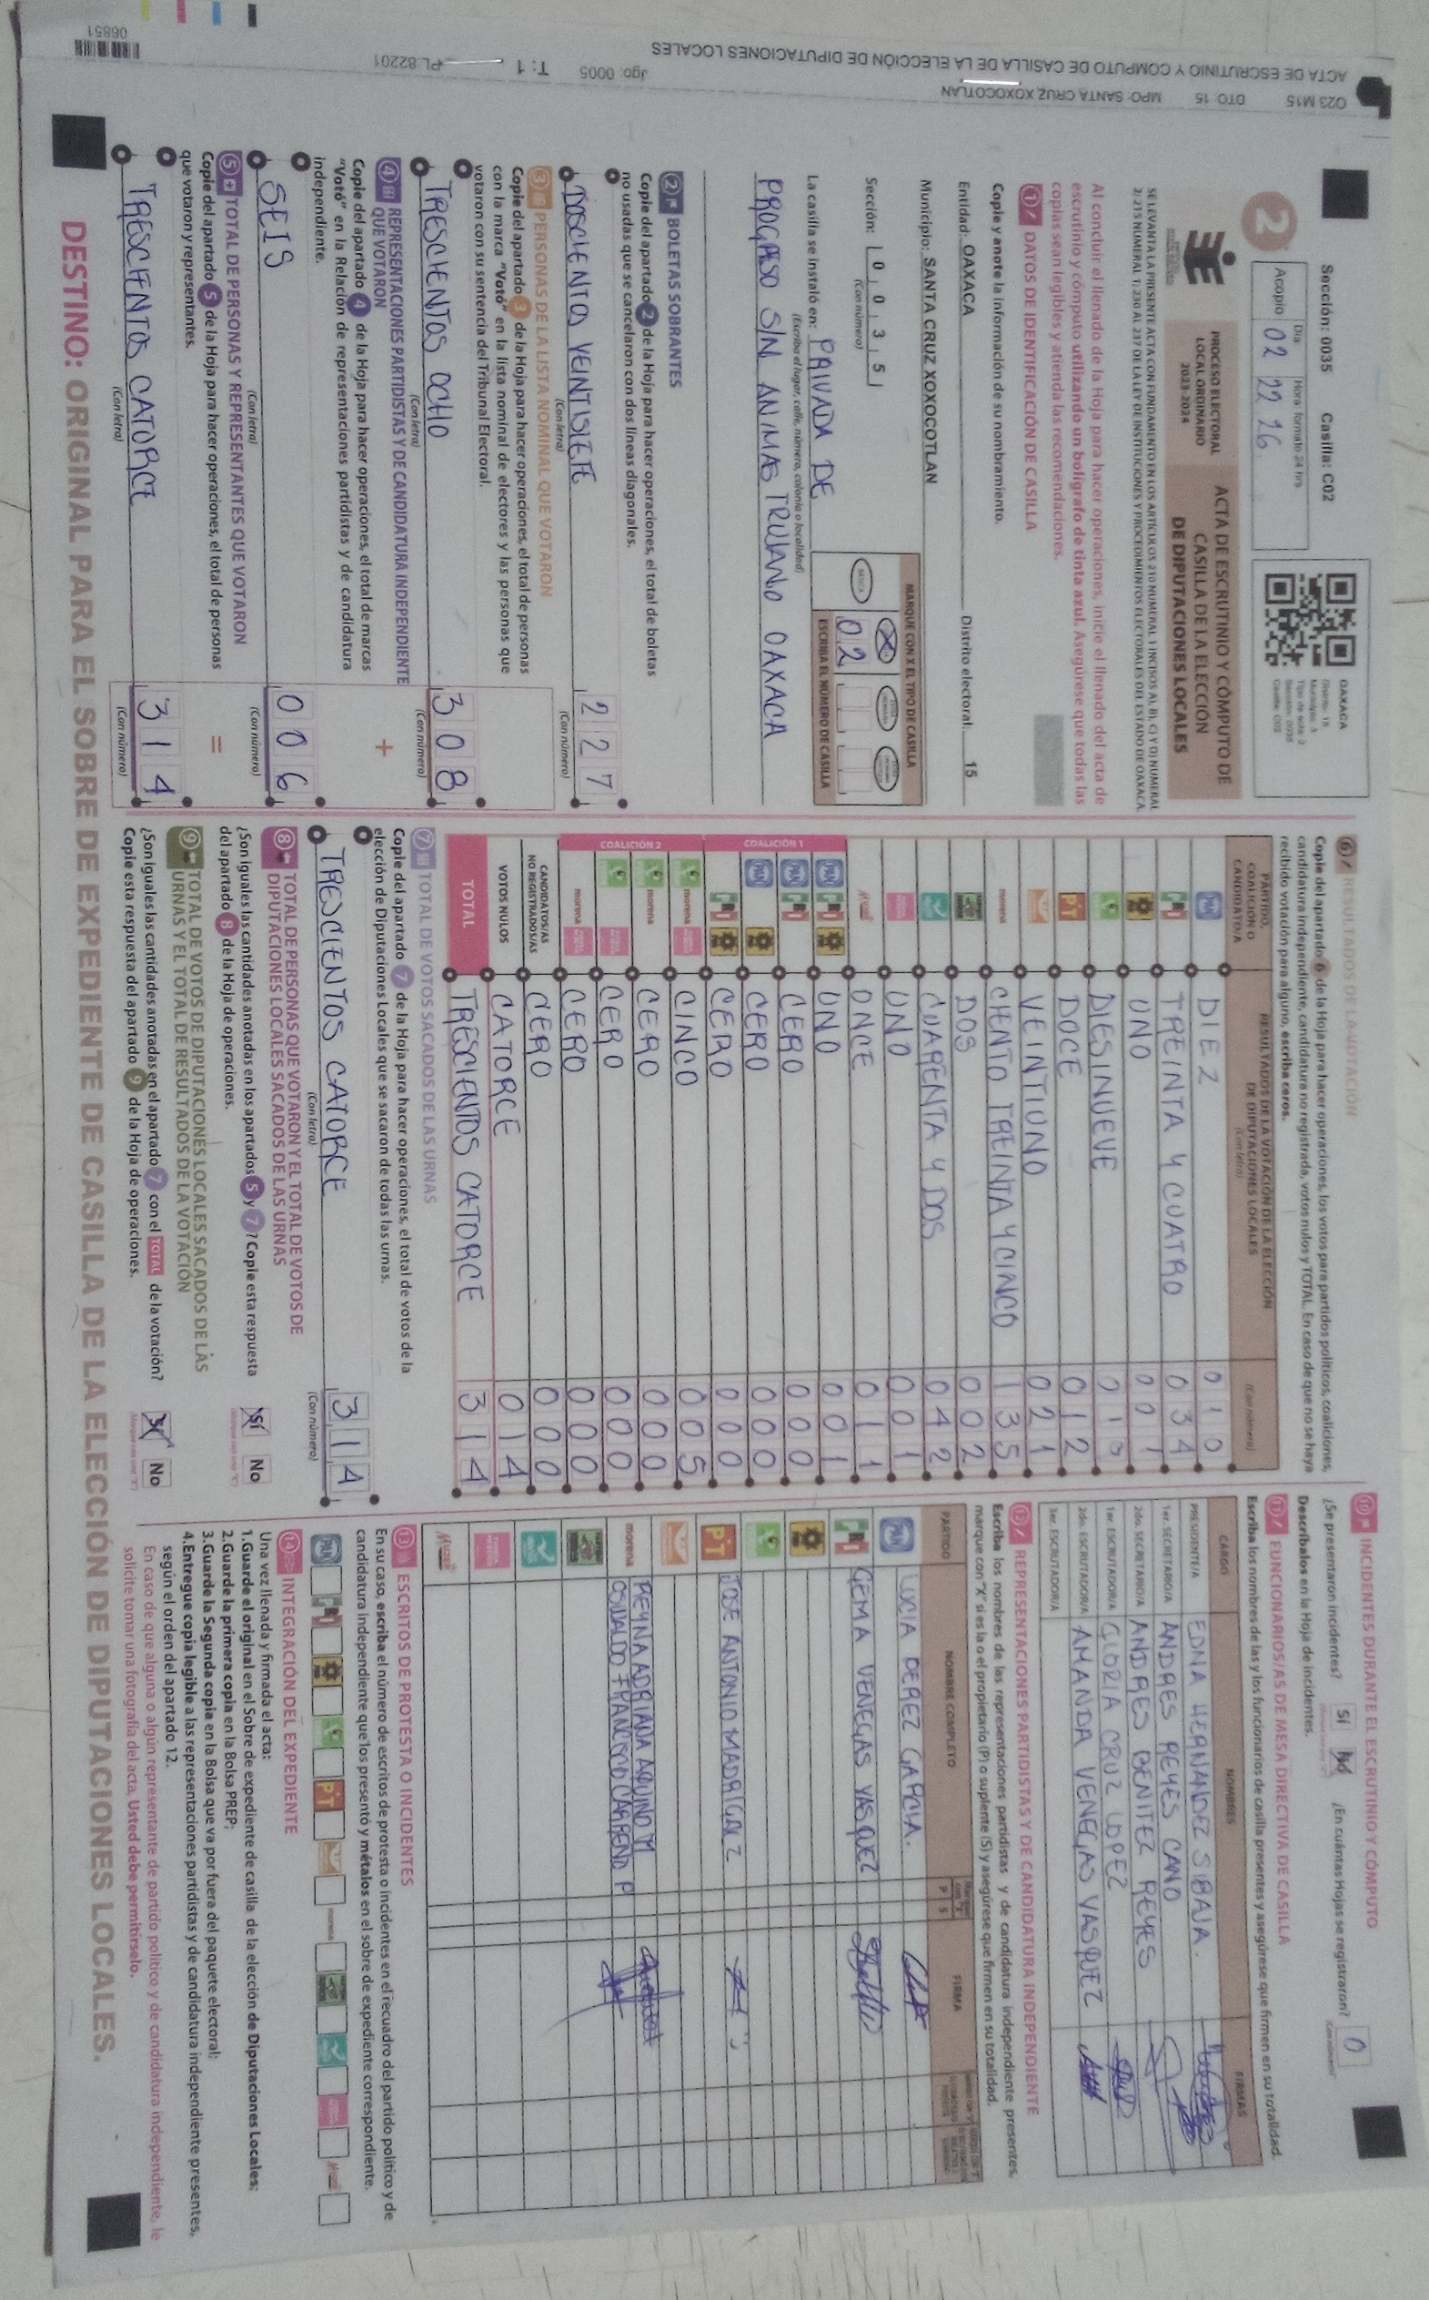 O23 M15 DTO: 15 MPO: SANTA CRUZ XOXOCOTLAN
ACTA DE ESCRUTINIO Y CÓMPUTO DE CASILLA DE LA ELECCIÓN DE DIPUTACIONES LOCALES
Jgo. 0005 T: 1 PL.82201
06851
Sección: 0035 Casilla: C02
2
Acopio
Día
Hora: formato 24 hrs
02 22 26
OAXACA
PROCESO ELECTORAL
LOCAL ORDINARIO
2023-2024
ACTA DE ESCRUTINIO Y CÓMPUTO DE
CASILLA DE LA ELECCIÓN
DE DIPUTACIONES LOCALES
SE LEVANTA LA PRESENTE ACTA CON FUNDAMENTO EN LOS ARTÍCULOS 210 NUMERAL 1 INCISOS A), B), C) Y D) NUMERAL
2; 215 NUMERAL 1; 230 AL 237 DE LA LEY DE INSTITUCIONES Y PROCEDIMIENTOS ELECTORALES DEL ESTADO DE OAXACA.
Al concluir el llenado de la Hoja para hacer operaciones, inicie el llenado del acta de
escrutinio y cómputo utilizando un bolígrafo de tinta azul. Asegúrese que todas las
copias sean legibles y atienda las recomendaciones.
1 DATOS DE IDENTIFICACIÓN DE CASILLA
Copie y anote la información de su nombramiento.
Entidad: OAXACA Distrito electoral: 15
Municipio: SANTA CRUZ XOXOCOTLAN
MARQUE CON X EL TIPO DE CASILLA
Sección: 0 0 3 5
(Con número)
BÁSICA
X
02
ESCRIBA EL NÚMERO DE CASILLA
La casilla se instaló en: PRIVADA DE
(Escriba el lugar, calle, número, colonia o localidad)
PROGRESO S/N ANIMAS TRUJANO OAXACA
2 BOLETAS SOBRANTES
Copie del apartado 2 de la Hoja para hacer operaciones, el total de boletas
no usadas que se cancelaron con dos líneas diagonales.
DOSCIENTOS VEINTISIETE 2 2 7
(Con letra) (Con número)
3 PERSONAS DE LA LISTA NOMINAL QUE VOTARON
Copie del apartado 3 de la Hoja para hacer operaciones, el total de personas
con la marca "Votó" en la lista nominal de electores y las personas que
votaron con su sentencia del Tribunal Electoral.
TRESCIENTOS OCHO 3 0 8
(Con letra) (Con número)
4 REPRESENTACIONES PARTIDISTAS Y DE CANDIDATURA INDEPENDIENTE
QUE VOTARON
+
Copie del apartado 4 de la Hoja para hacer operaciones, el total de marcas
"Votó" en la Relación de representaciones partidistas y de candidatura
independiente.
SEIS 0 0 6
(Con letra) (Con número)
5 TOTAL DE PERSONAS Y REPRESENTANTES QUE VOTARON
=
Copie del apartado 5 de la Hoja para hacer operaciones, el total de personas
que votaron y representantes.
TRESCIENTOS CATORCE 3 1 4
(Con letra) (Con número)
6 RESULTADOS DE LA VOTACIÓN
Copie del apartado 6 de la Hoja para hacer operaciones, los votos para partidos políticos, coaliciones,
candidatura independiente, candidatura no registrada, votos nulos y TOTAL. En caso de que no se haya
recibido votación para alguno, escriba ceros.
PARTIDO, COALICIÓN O CANDIDATO/A
RESULTADOS DE LA VOTACIÓN DE LA ELECCIÓN DE DIPUTACIONES LOCALES
(Con letra) (Con número)
PAN DIEZ 0 1 0
PRI TREINTA Y CUATRO 0 3 4
UNO 0 0 1
DIESINUEVE 0 1 9
PT DOCE 0 1 2
VEINTIUNO 0 2 1
morena CIENTO TREINTA Y CINCO 1 3 5
DOS 0 0 2
CUARENTA Y DOS 0 4 2
UNO 0 0 1
ONCE 0 1 1
COALICIÓN 1
PAN PRI UNO 0 0 1
PAN PRI CERO 0 0 0
PAN CERO 0 0 0
PRI CERO 0 0 0
COALICIÓN 2
morena CINCO 0 0 5
morena CERO 0 0 0
CERO 0 0 0
morena CERO 0 0 0
CANDIDATOS/AS NO REGISTRADOS/AS CERO 0 0 0
VOTOS NULOS CATORCE 0 1 4
TOTAL TRESCIENTOS CATORCE 3 1 4
7 TOTAL DE VOTOS SACADOS DE LAS URNAS
Copie del apartado 7 de la Hoja para hacer operaciones, el total de votos de la
elección de Diputaciones Locales que se sacaron de todas las urnas.
TRESCIENTOS CATORCE 3 1 4
(Con letra) (Con número)
8 TOTAL DE PERSONAS QUE VOTARON Y EL TOTAL DE VOTOS DE
DIPUTACIONES LOCALES SACADOS DE LAS URNAS
¿Son iguales las cantidades anotadas en los apartados 5 y 7? Copie esta respuesta
del apartado 8 de la Hoja de operaciones.
Sí No
9 TOTAL DE VOTOS DE DIPUTACIONES LOCALES SACADOS DE LAS
URNAS Y EL TOTAL DE RESULTADOS DE LA VOTACIÓN
¿Son iguales las cantidades anotadas en el apartado 7 con el TOTAL de la votación?
Copie esta respuesta del apartado 9 de la Hoja de operaciones.
Sí No
10 INCIDENTES DURANTE EL ESCRUTINIO Y CÓMPUTO
¿Se presentaron incidentes? Sí No ¿En cuántas Hojas se registraron? 0
Descríbalos en la Hoja de incidentes.
11 FUNCIONARIOS/AS DE MESA DIRECTIVA DE CASILLA
Escriba los nombres de las y los funcionarios de casilla presentes y asegúrese que firmen en su totalidad.
CARGO NOMBRES FIRMAS
PRESIDENTE/A EDNA HERNANDEZ SIBAJA.
1er. SECRETARIO/A ANDRES REYES CANO
2do. SECRETARIO/A ANDRES BENITEZ REYES
1er. ESCRUTADOR/A GLORIA CRUZ LOPEZ
2do. ESCRUTADOR/A AMANDA VENEGAS VASQUEZ
3er. ESCRUTADOR/A
12 REPRESENTACIONES PARTIDISTAS Y DE CANDIDATURA INDEPENDIENTE
Escriba los nombres de las representaciones partidistas y de candidatura independiente presentes,
marque con "X" si es la o el propietario (P) o suplente (S) y asegúrese que firmen en su totalidad.
PARTIDO NOMBRE COMPLETO P S FIRMA
PAN LUCIA PEREZ GARCIA.
PRI GEMA VENEGAS VASQUEZ
PT JOSE ANTONIO MADRIGAL Z
morena REYNA ADRIANA AQUINO M
OSVALDO FRANCISCO CARREÑO P
13 ESCRITOS DE PROTESTA O INCIDENTES
En su caso, escriba el número de escritos de protesta o incidentes en el recuadro del partido político y de
candidatura independiente que los presentó y métalos en el sobre de expediente correspondiente.
PAN PRI PT morena
14 INTEGRACIÓN DEL EXPEDIENTE
Una vez llenada y firmada el acta:
1.Guarde el original en el Sobre de expediente de casilla de la elección de Diputaciones Locales;
2.Guarde la primera copia en la Bolsa PREP;
3.Guarde la Segunda copia en la Bolsa que va por fuera del paquete electoral;
4.Entregue copia legible a las representaciones partidistas y de candidatura independiente presentes,
según el orden del apartado 12.
En caso de que alguna o algún representante de partido político y de candidatura independiente, le
solicite tomar una fotografía del acta, Usted debe permitírselo.
DESTINO: ORIGINAL PARA EL SOBRE DE EXPEDIENTE DE CASILLA DE LA ELECCIÓN DE DIPUTACIONES LOCALES.